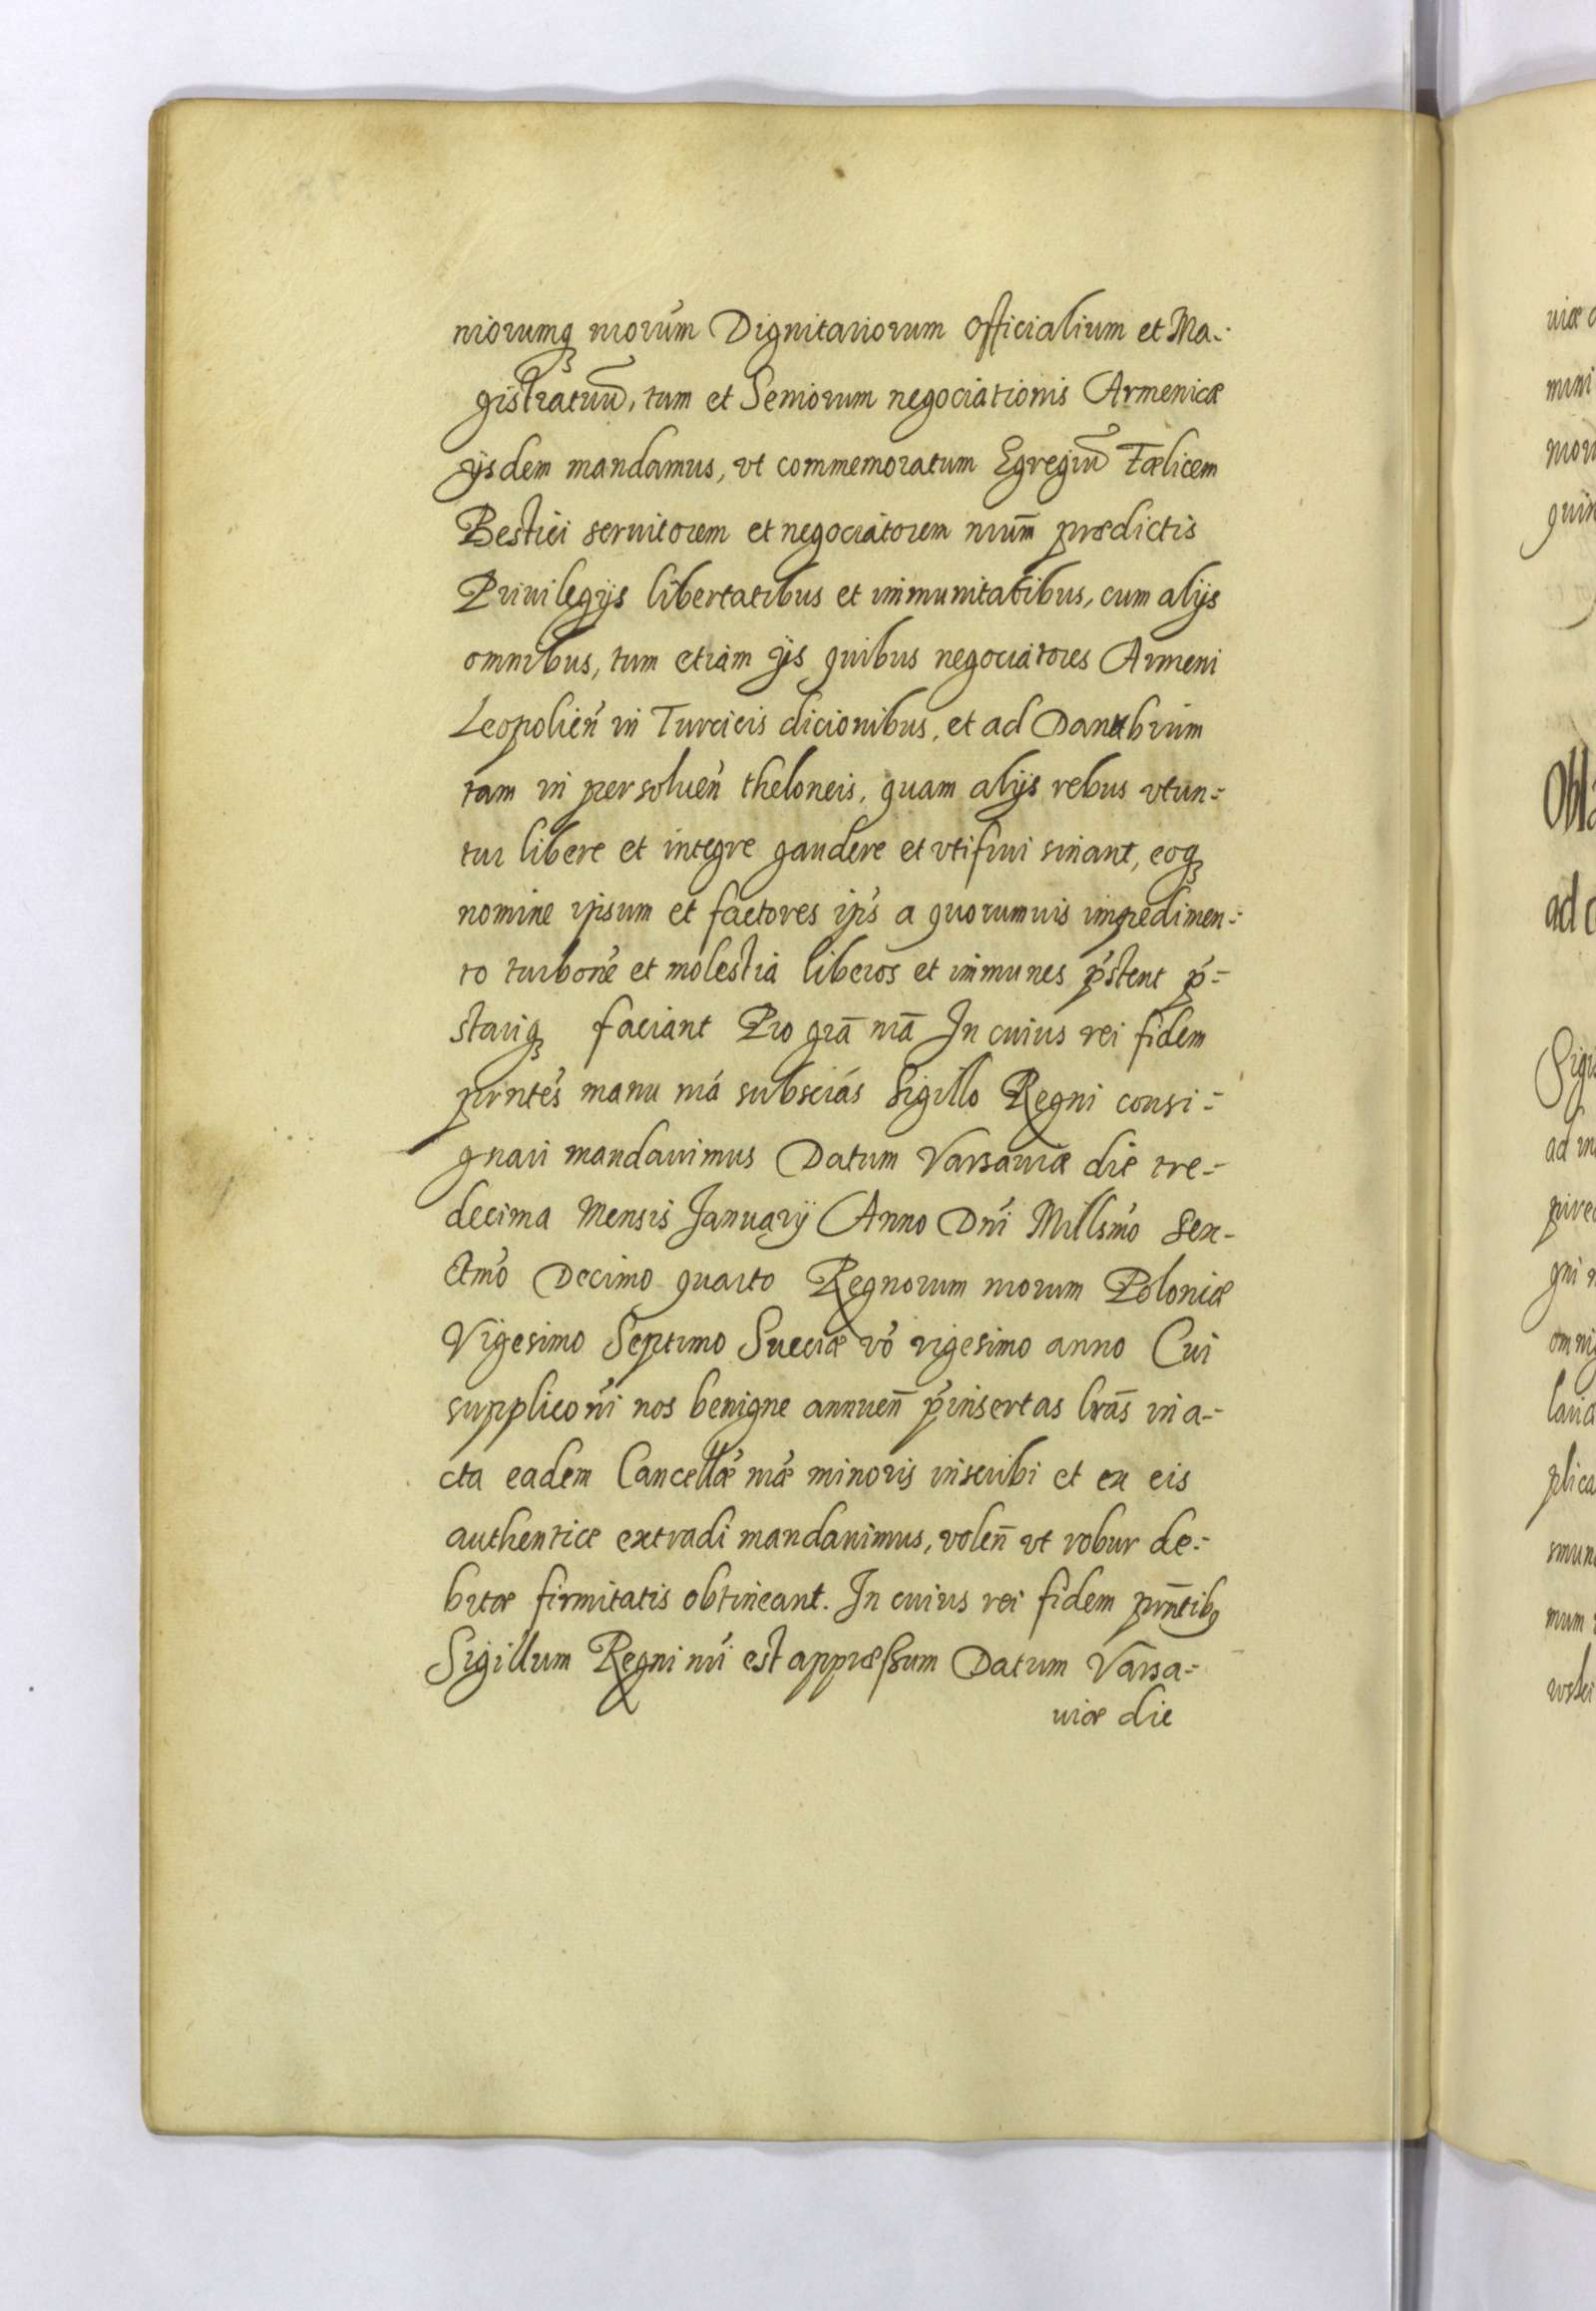 niorumq́ nrorum̃ Dignitariorum Officialium et Ma-
gistratuũ, tum et Seniorum negociationis Armenicæ
ijsdem mandamus, vt commemoratum Egregiũ Fælicem
Bestici seruitorem et negociatorem nrum̃ prædictis
Priuilegijs libertatibus et immunitatibus, cum alijs
omnibus, tum etiam ijs quibus negociatores Armeni
Leopolien̄ in Turcicis dicionibus, et ad Danubium
tam in persoluen̄ theloneis, quam alijs rebus vtun-
tur libere et integre gaudere et vti frui sinant, eoq́
nomine ipsum et factores ip̄s a quorumuis impedimen-
to turbōne et molestia liberos et immunes p̄stent p̄-
stariq́ faciant Pro grā nrā In cuius rei fidem
prntēs manu nrā subscrās Sigillo Regni consi-
gnari mandauimus Datum Varsauiæ die tre-
decima Mensis Januarij Anno Dnī Millsmō Sex-
ctmō Decimo quarto Regnorum nrorum Poloniæ
Vigesimo Septimo Sueciæ vō vigesimo anno Cui
supplicōni nos benigne annuen̄ p̄insertas lrās in a-
cta eadem Cancellǣ nrǣ minoris inscribi et ex eis
authentice extradi mandauimus, volen̄ vt robur de-
bitæ firmitatis obtineant. In cuius rei fidem prn̄tibꝫ
Sigillum Regni nrī est appræssum Datum Varsa-
uiæ die